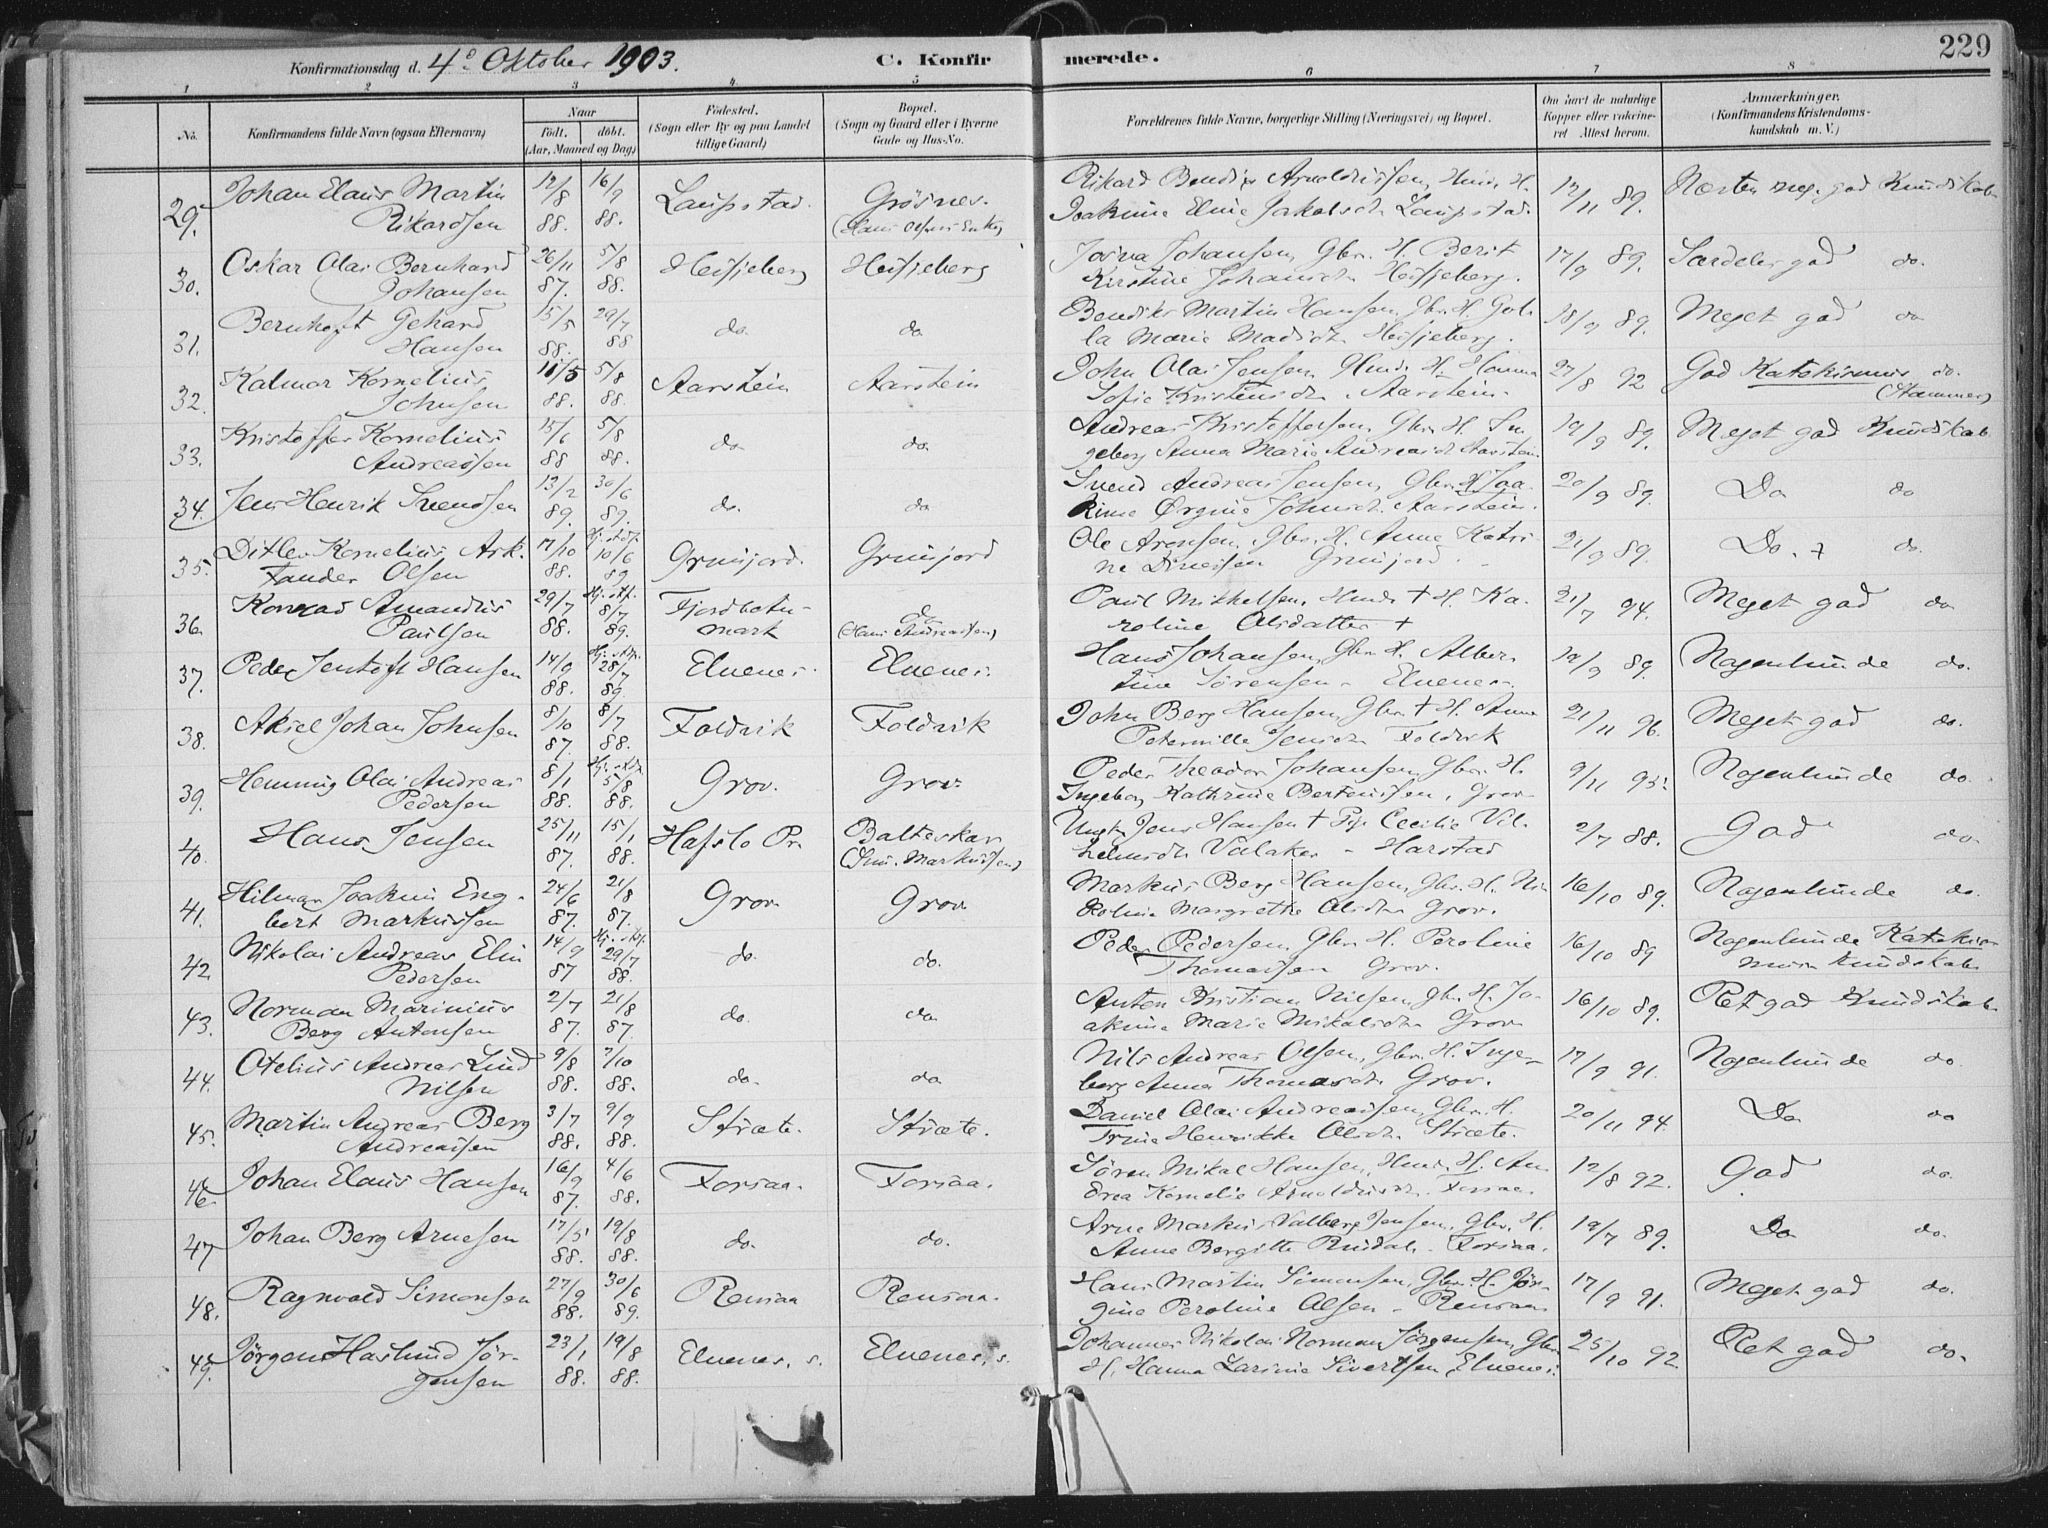 Konfirmationsdag d. 4de Oktober 1903. C. Konfirmerede. 229
1 2 3 4 5 6 7 8
No. Konfirmandens fulde Navn (ogsaa Efternavn) Naar födt. döbt. (Aar, Maaned og Dag) Födested. (Sogn eller By og paa Landet tillige Gaard) Bopæl. (Sogn og Gaard eller i Byerne Gade og Hus-No. Forældrenes fulde Navne, borgerlige Stilling (Næringsvei) og Bopæl. Om havt de naturlige Kopper eller vakcineret Attest herom. Anmærkninger. (Konfirmandens Kristendomskundskab m. V.)
29. Johan Elaus Martin 12/8 16/9 Laupstad. Grösnes. Rikard Bendix Arnoldussen, H. 12/11 89. Næsten meg. god Kundskab
Rikardsen 88. 88. (Hans Olsens Enke) Joakime Eline Jakobsdr. Laupstad.
30. Oskar Olai Bernhard 26/11 5/8 Heisjeberg Heisjeberg Josva Johansen, Gbr. H. Berit 17/9 89. Særdeles god do.
Johansen 87. 88. Kirstine Johansdr. Heisjeberg.
31. Bernhoft Gehard 15/5 29/7 do. do Bendiks Martin Hansen, Gbr. H. 18/9 89. Meget god do
Hansen 88. 88 Marie Madsdr. Heisjeberg.
32. Kalmar Kornelius 11/5 5/8 Aarstein Aarstein John Olai Jensen, Hmd. H. Hanna 27/8 92 God Katekismus do.
Johnsen 88. 88. Sofie Kristensdr. Aarstein. (Stammer)
33. Kristoffer Kornelius 15/6 5/8 do do. Andreas Kristoffersen, Gbr. H. In 19/9 89. Meget god Kundskab
Andreassen 88 88. geborg Anna Marie Andreasdr. Aarstein
34. Jens Henrik Svendsen 13/2 30/6 do. do Svend Andreas Jensen, Gbr. H. Joa 20/9 89. Do do
89. 89. kime Ørgine Johnsdr. Aarstein.
35. Ditlev Kornelius Ark. 17/10 Hj. døb. 10/6 Grunfjord. Grunfjord Ole Arensen, Gbr. H. Anne Katri 21/9 89. Do. + do.
Tander Olsen 88. 89 ne Grunfjord.
36. Konrad Amandus 29/7 8/7 Fjordbotn do Paul Mikkelsen, Hmd. + H. Ka 21/7 94. Meget god do
Paulsen 88. 89. mark (Hans Andreassen) roline Olsdatter +
37. Peder Jentoft Hansen 14/9 28/7 Elvenes. Elvenes. Hans Johansen, Gbr. H. Alber 19/9 89. Nogenlunde do.
88. 89 tine Sörensen - Elvenes.
38. Aksel Johan Johnsen 8/10 8/7 Foldvik Foldvik John Berg Hansen, Gbr. + H. Anne 21/11 96. Meget god do.
87. 88. Petermille Jensdr. Foldvik
39. Hemming Olai Andreas 8/1 5/8 Grov. Grov. Peder Theodor Johansen, Gbr. H. 9/11 95. Nogenlunde do.
Pedersen 88. 88. Ingeborg Kathrine Berteussen, Grov
40. Hans Jensen 25/11 15/1 Hafslo Pr. Balteskar Ungk. Jens Hansen + Pige Cecilie Vil 2/7 88. God do.
87. 88. (Markussen) helmsdr. Valaker - Harstad
41. Hilmar Joakim Eng 24/6 21/8 Grov Grov Markus Berg Hansen, Gbr. H. Ni 16/10 89. Nogenlunde do.
bert Markussen 87. 87. koline Margrethe Olsdr. Grov.
42 Nikolai Andreas Elin 14/9 29/7 do. do. Peder Pedersen, Gbr. H. Peroline 16/10 89 Nogenlunde Katekis
Pedersen 87 88. Thomassen Grov. mus Kundskab
43. Norman Marinius 2/7 21/8 do do Anton Kristian Nilsen, Gbr. H. Jo 16/10 89. Ret god Kundskab
Berg Antonsen 87. 87. akime Marie Mikalsdr. Grov
44. Otelius Andreas Lind 9/8 7/10 do. do Nils Andreas Olsen, Gbr. H. Inge 17/9 91. Nogenlunde do
Nilsen 88. 88. borg Anna Thomasdr. Grov.
45. Martin Andreas Berg 3/7 9/9 Stræte. Stræte. Daniel Olai Andreassen, Gbr. H. 20/11 94. Do do
Andreassen 88. 88. Trine Henrikke Olsdr. Stræte.
46. Johan Elaus Hansen 16/9 4/6 Forsaa. Forsaa. Sören Mikal Hansen, Hmd. H. An 12/8 92. God do.
87. 88. drea Kornelie Arnoldusdr. Forsaa
47 Johan Berg Arnesen 17/5 19/8 do. do. Arne Markus Valberg Jensen, Gbr. H. 19/7 89. Do do.
88. 88. Anne Bergitte Forsaa.
48. Ragnvald Simonsen 27/9 30/6 Rensaa Rensaa. Hans Martin Simonsen, Gbr. H. Jör 17/9 91. Meget god do.
88. 89. gine Peroline Olsen - Rensaa
49. Jörgen Haslund Jör 23/1 19/8 Elvenes, s. Elvenes, s. Johannes Nikolai Norman Jörgensen, Gbr. 25/10 92. Ret god do.
gensen 88. 88. H. Hanna Larsine Sivertsen Elvenes.